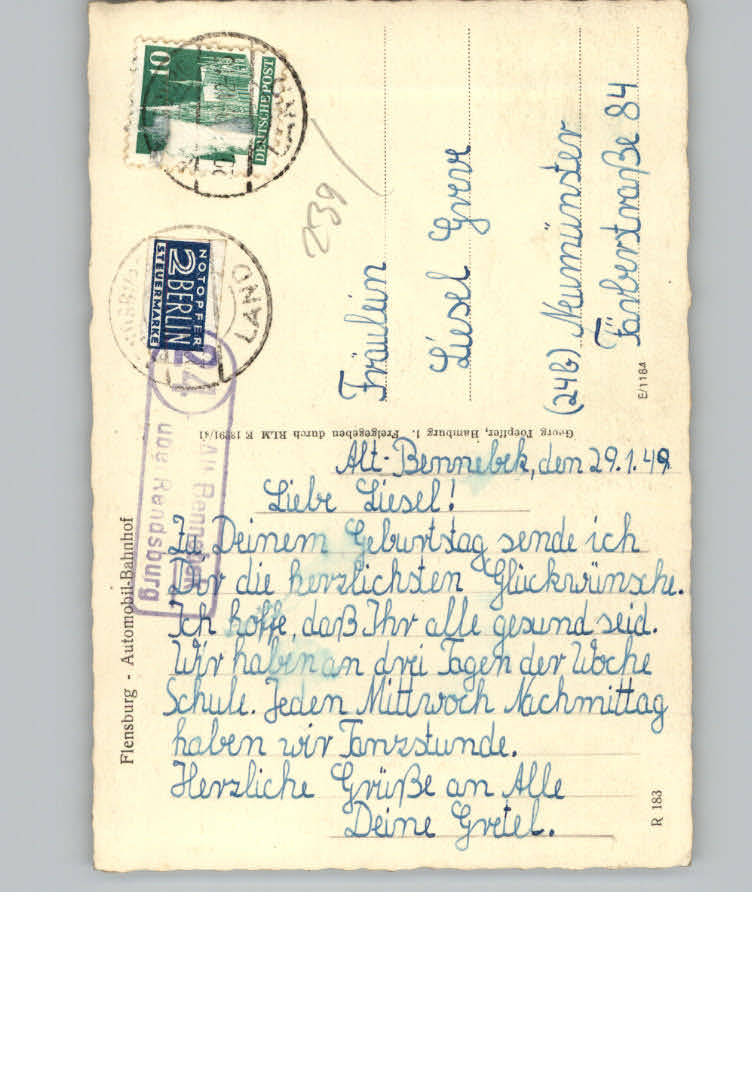 Flensburg - Automobil-Bahnhof
Alt-Bennebek, den 29.1.49
Liebe Liesel!
Zu Deinem Geburtstag sende ich
Dir die herzlichsten Glückwünsche.
Ich hoffe, daß Ihr alle gesund seid.
Wir haben an drei Tagen der Woche
Schule. Jeden Mittwoch Nachmittag
haben wir Tanzstunde.
Herzliche Grüße an Alle
Deine Gretel.
R 183
Georg Toepffer, Hamburg 1. Freigegeben durch RLM
Fräulein
Liesel Greve
(24b) Neumünster
Färberstraße 84
E/1184
239
10
DEUTSCHE POST
NOTOPFER
2 BERLIN
STEUERMARKE
LAND
24
Alt Bennebek
über Rendsburg